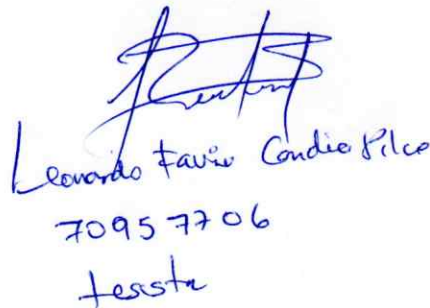 Leonardo Favio Condio Pilco
70957706
tesista